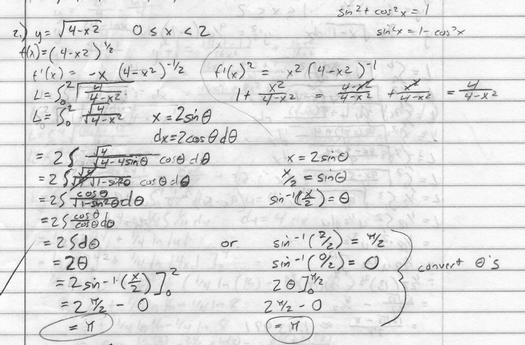 sin² + cos²x = 1
2.) y = √(4-x2) 0 ≤ x < 2 sin²x = 1 - cos²x
f(x) = (4-x²)^½
f'(x) = -x (4-x²)^-1/2 f'(x)² = x²(4-x²)^-1
L = ∫₀² √(4/(4-x²)) 1 + x²/(4-x²) = (4-x²)/(4-x²) + x²/(4-x²) = 4/(4-x²)
L = ∫₀² √4/√(4-x²) x = 2sinθ
dx = 2cosθ dθ
= 2∫ √4/√(4-4sinθ) cosθ dθ x = 2sinθ
= 2∫ √4/(√4 √(1-sin²θ)) cosθ dθ x/2 = sinθ
= 2∫ cosθ/√(1-sin²θ) dθ sin⁻¹(x/2) = θ
= 2∫ cosθ/cosθ dθ
= 2∫dθ or sin⁻¹(2/2) = π/2
= 2θ sin⁻¹(0/2) = 0 convert θ's
= 2sin⁻¹(x/2)]₀² 2θ]₀^π/2
= 2 π/2 - 0 2 π/2 - 0
= π = π